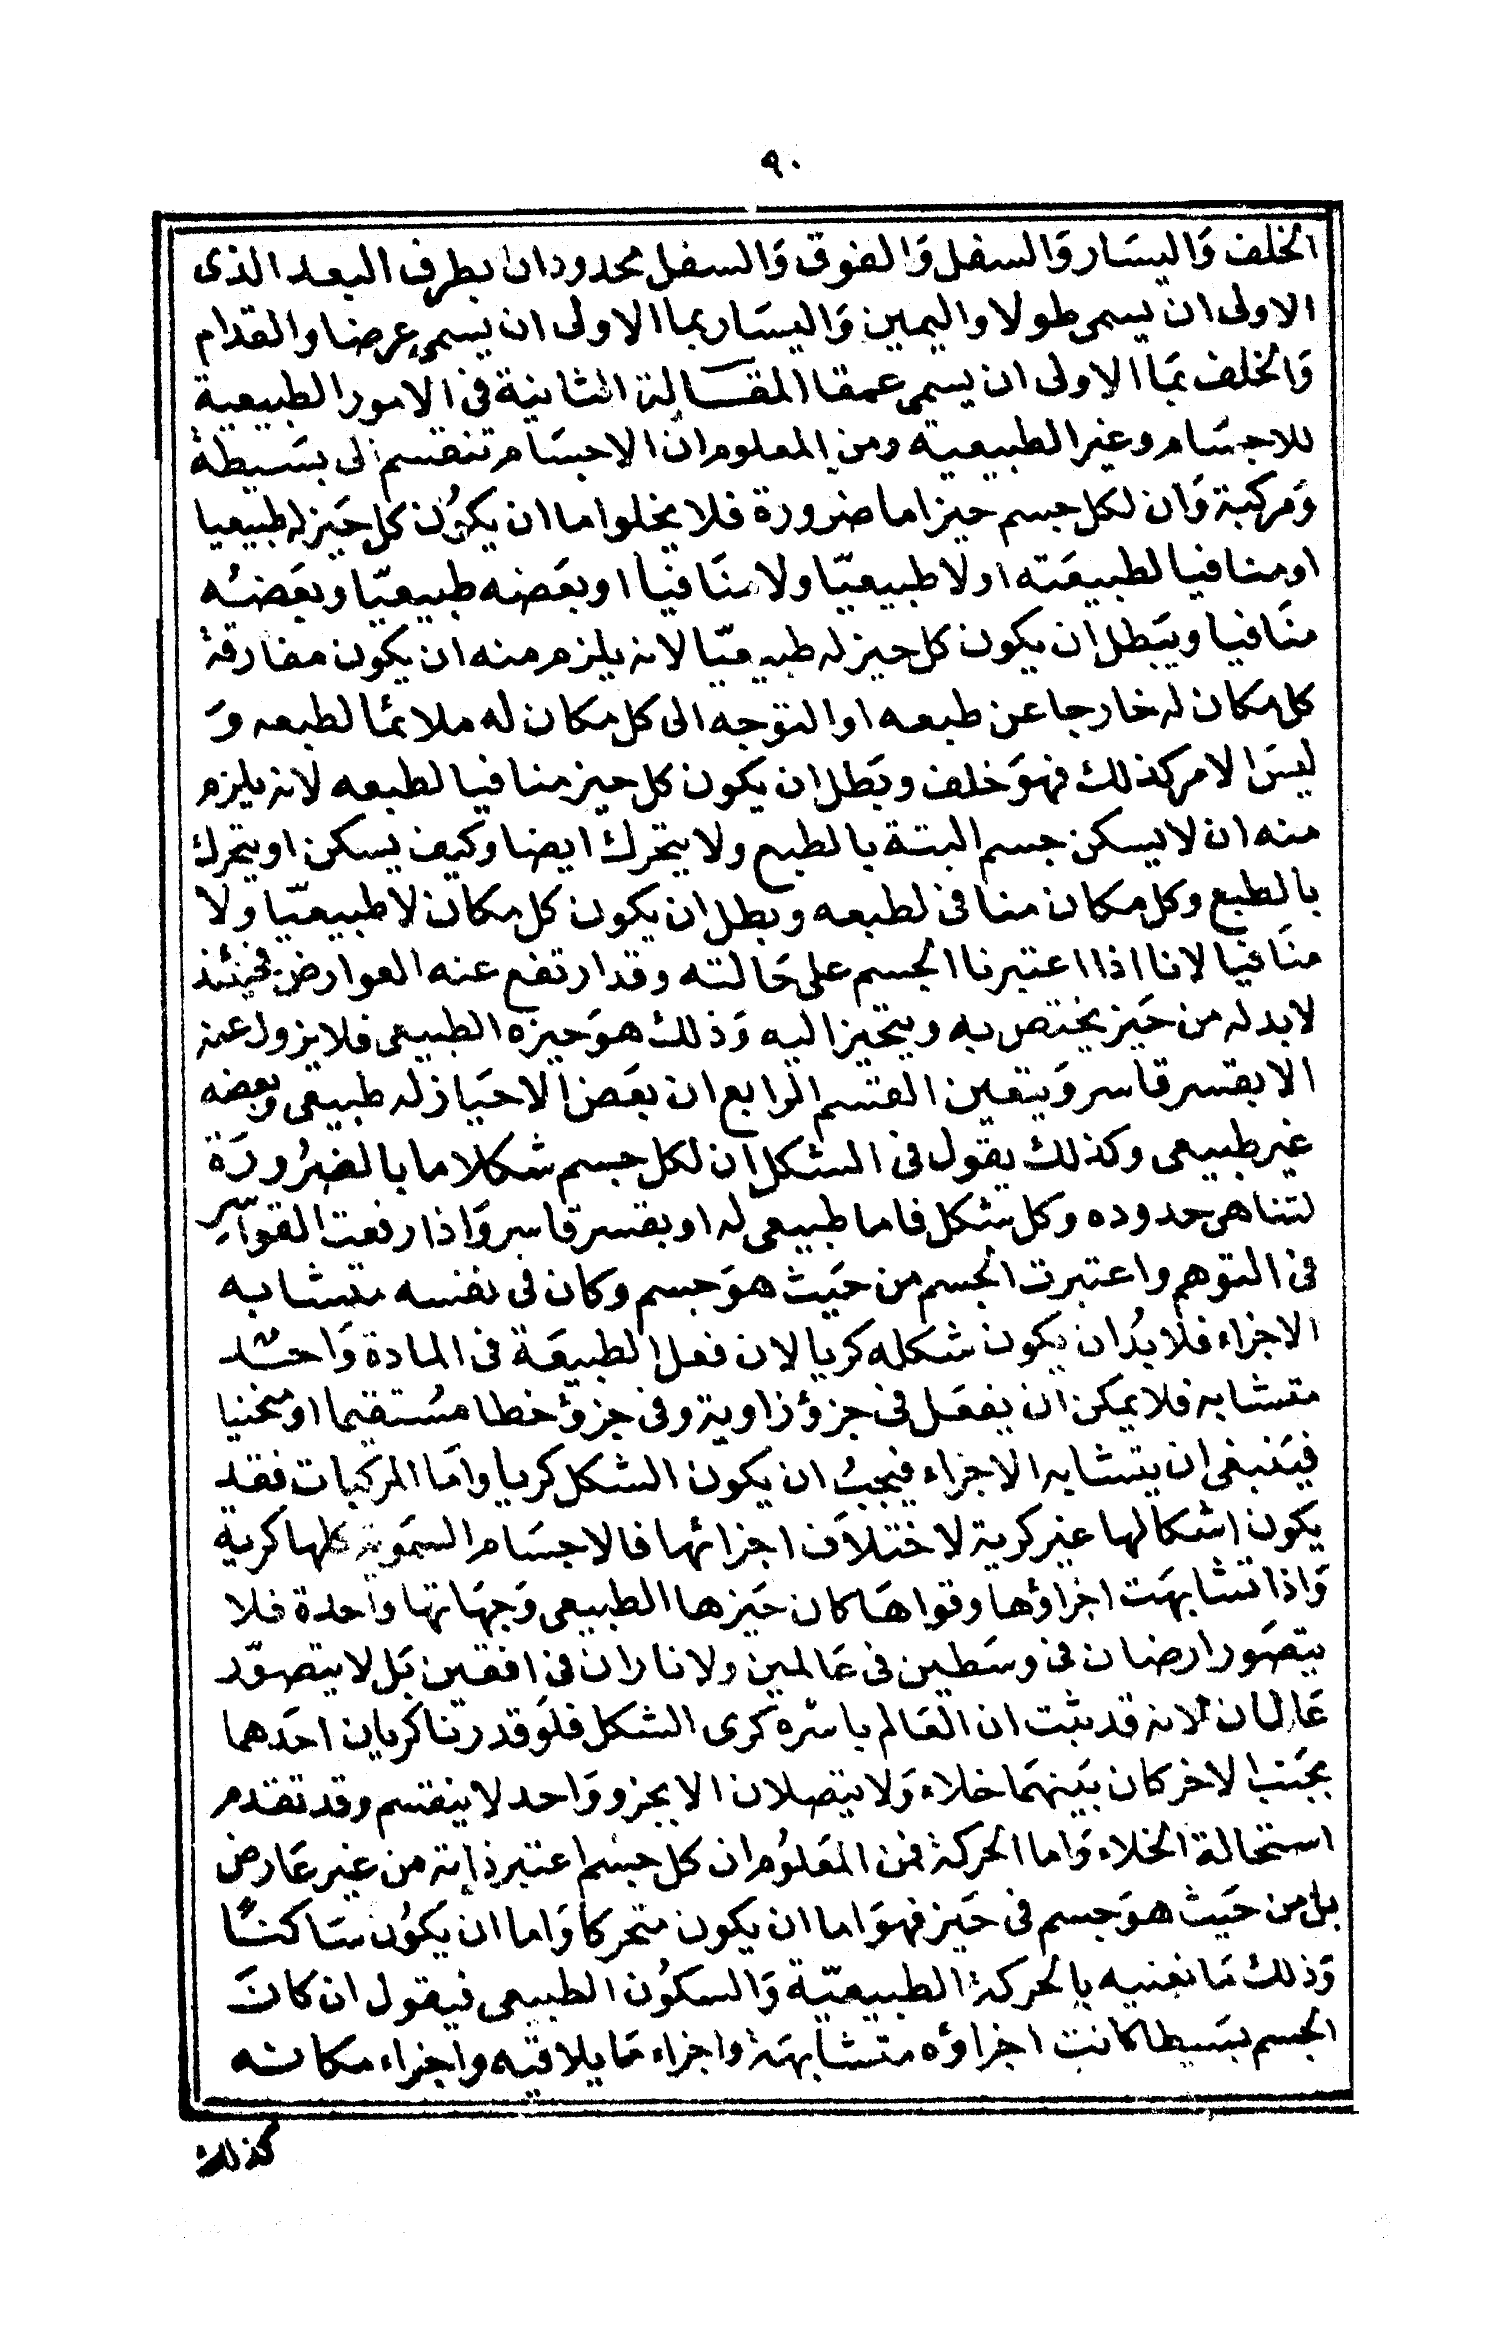 ٩٠
الخلف وَاليسَار وَالسفل وَالفوق وَالسفل محدودان بطرفى البعد الذى
الاولى ان يسمى طولا واليمين وَاليسَار بما الاولى ان يسمى عرضا والقدام
وَالخلف بمَا الاولى ان يسمى عمقا المقَالة الثانية فى الامور الطبيعية
للاجسَام وغير الطبيعية ومن المعلوم ان الاجسَام تنقسم الى بسَيطة
وَمركبة وَان لكل جسم حيزا ما ضرورة فلا يخلوا اما ان يكوُن كل حَيز له طبيعيا
او منافيا لطبيعَته او لا طبيعيّا ولا منَافيا او بعَضه طبيعيّا وبعَضُه
منَافيا ويَبطل ان يكون كل حيز له طبيعيّا لانه يلزم منه ان يكون مفارقة
كل مكان له خارجا عن طبعه او التوجه الى كل مكان له ملائمًا لطبعه وَ
ليسَ الامر كذلك فهوَ خلف وبَطل ان يكون كل حيز منافيا لطبعه لانه يلزم
منه ان لا يسكن جسم البتة بالطبع ولا يتحرك ايضا وكيف يسكن او يتحرك
بالطبع وكل مكان منافى لطبعه وبطل ان يكون كل مكان لا طبيعيّا ولا
منَافيا لانا اذا اعتبرنا الجسم على حَالته وقد ارتفع عنه العوارض فحينئذ
لا بد له من حَيز يختص به ويتحيز اليه وَذلك هوَ حيزه الطبيعى فلا يزول عنه
الا بقسر قاسر وَيتعين القسم الرابع ان بعَض الاحيَاز له طبيعى وبعضه
غير طبيعى وكذلك يقول فى الشكل ان لكل جسم شكلا ما بالضرُورَة
لتناهى حدوده وكل شكل فاما طبيعى له او بقسر قاسر وَاذا رفعت القوآسر
فى التوهم واعتبرت الجسم من حَيث هوَ جسم وكان فى نفسه متشابه
الاجزاء فلا بدُ ان يكون شكله كريا لان فعل الطبيعَة فى المادة وَاحد
متشابه فلا يمكن ان يفعَل فى جزؤ زاوية وفى جزؤ خطا مسُتقيما او منحنيا
فيَنبغى ان يتشابه الاجزاء فيجبُ ان يكون الشكل كريا وامَا المركبات فقد
يكون اشكالها غير كرية لاختلاَف اجزائها فالاجسَام السموَية كلها كرية
وَاذا تشابهَت اجزاؤها وقواهَا كان حَيزها الطبيعى وَجهَاتها واحدة فلا
يتصَور ارضان فى وسَطين فى عَالمين ولا ناران فى افقين بَل لا يتصوّر
عَالمان لانه قد يثبت ان العَالم باسره كرى الشكل فلوَ قدرنا كريان احدَهما
بجَنب الاخر كان بَينهمَا خلاء وَلا يتصلان الا بجزو وَاحد لا ينقسم وقد تقدم
استحالة الخلاء وَاما الحركة فمن المَعلوُم ان كل جسم اعتبر ذاته من غير عَارض
بل من حَيث هوَ جسم فى حَيز فهوَ اما ان يكون متحركا وَاما ان يكوُن سَاكنًا
وَذلك مَا نعنيه بالحركة الطبيعيّة وَالسكوُن الطبيعى فيقول ان كانَ
الجسم بسَيطا كانت اجزاؤه متشابهَة واجزاء مَا يلاقيه واجزاء مكانه
كذلك